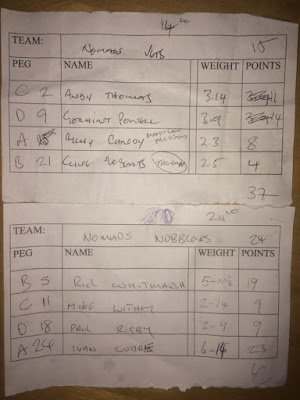 14
TEAM: NOMADS 15
PEG NAME WEIGHT POINTS
C 2 ANDY THOMAS 3-14
D 9 3-9 14
A RICKY 2-3 8
B 21 CLIVE ROBERTS 2-5 4
37
24
TEAM: NOMADS NOBBLERS 24
PEG NAME WEIGHT POINTS
B 5 RICH WHITMARSH 5-10½ 19
C 11 MIKE WITHEY 2-14 9
D 18 PAUL RISBY 2-9 9
A 24 IVAN CURRIE 6-14 23